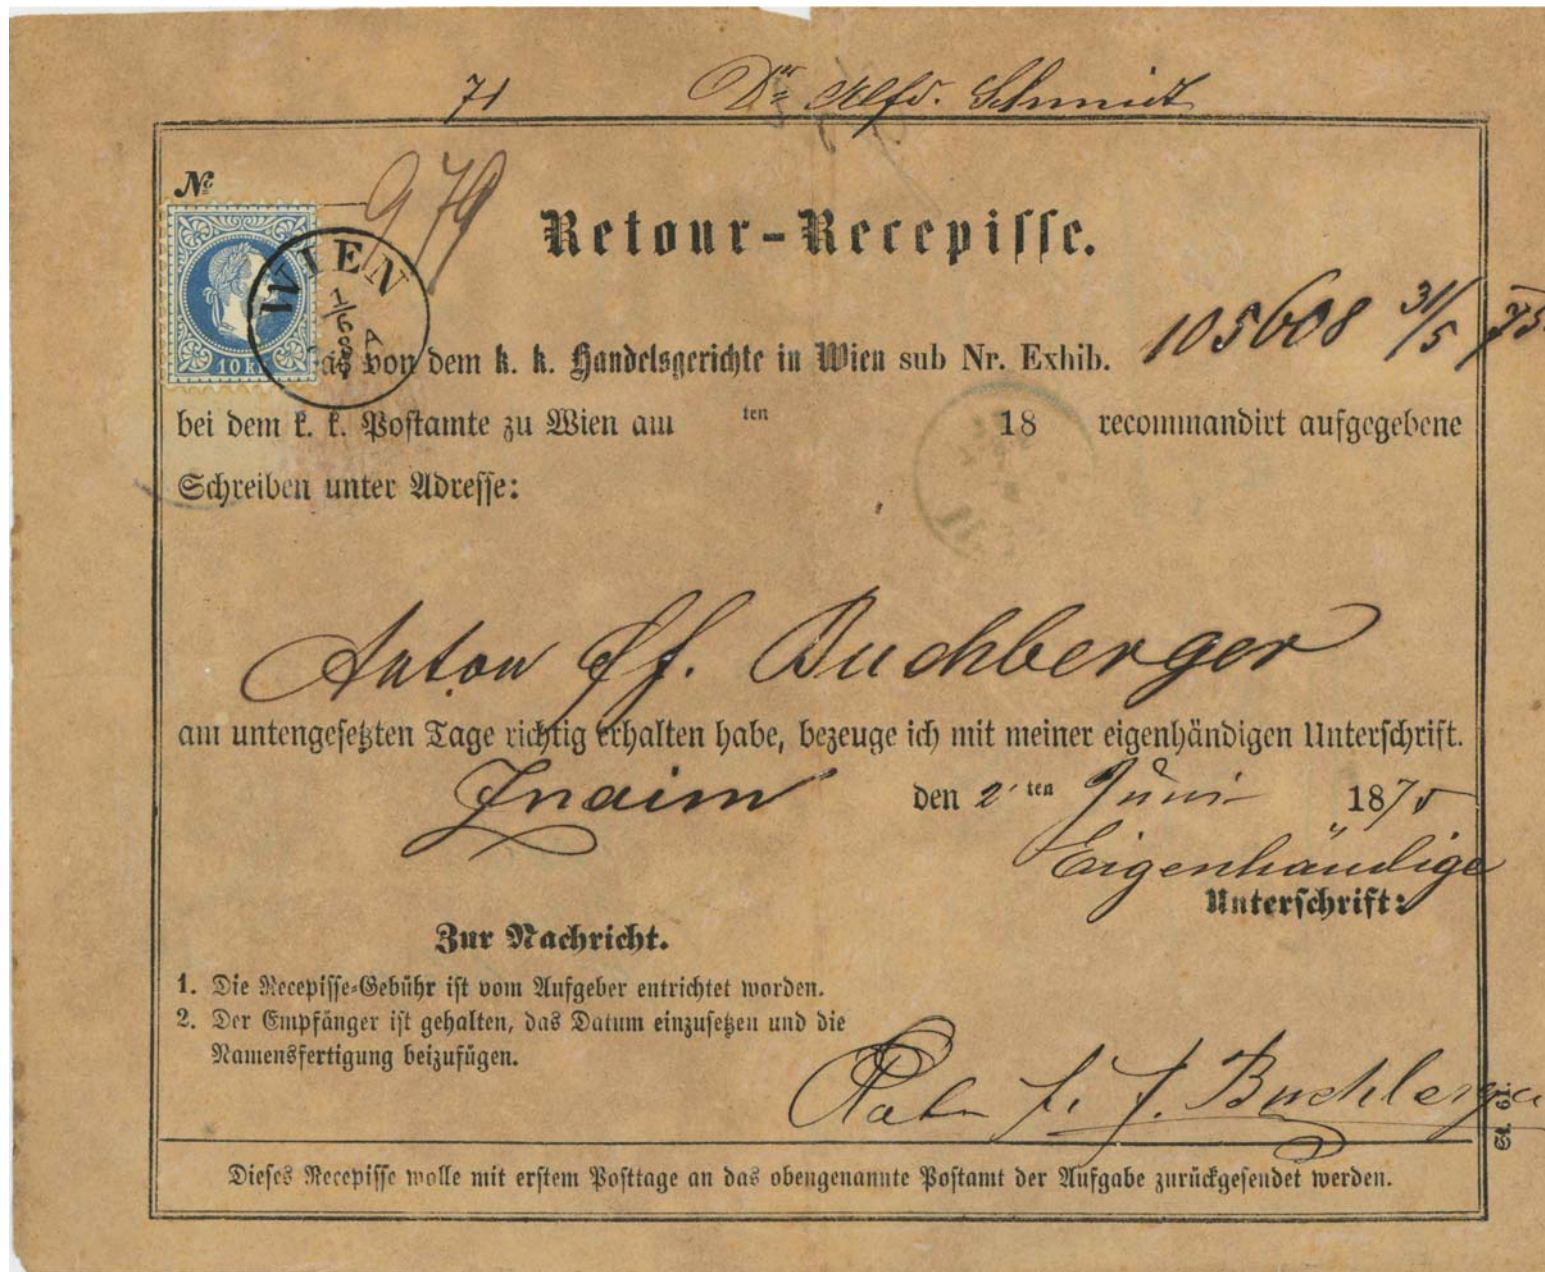 71 Dr Alfd. Schmidt
No 979
Retour-Recepisse.
WIEN
1/6
10 kr
Daß von dem k. k. Handelsgerichte in Wien sub Nr. Exhib. 105608 31/5 75
bei dem k. k. Postamte zu Wien am ten 18 recommandirt aufgegebene
Schreiben unter Adresse:
Anton Buchberger
am untengesetzten Tage richtig erhalten habe, bezeuge ich mit meiner eigenhändigen Unterschrift.
Znaim den 2 ten Juni 1875
Eigenhändige
Unterschrift:
Zur Nachricht.
1. Die Recepisse-Gebühr ist vom Aufgeber entrichtet worden.
2. Der Empfänger ist gehalten, das Datum einzusetzen und die
Namensfertigung beizufügen.
Buchberger
St. 61.
Dieses Recepisse wolle mit erstem Posttage an das obengenannte Postamt der Aufgabe zurückgesendet werden.